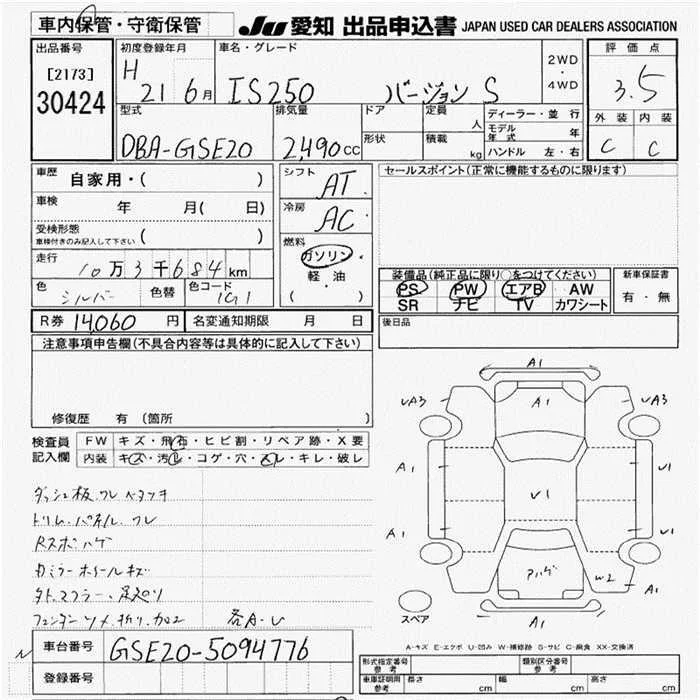 車内保管・守衛保管
JU 愛知 出品申込書 JAPAN USED CAR DEALERS ASSOCIATION
出品番号
[2173]
30424
初度登録年月
H
21 6月
車名・グレード
IS250 バージョン S
2WD
・
4WD
評価点
3.5
外装 内装
C C
型式
DBA-GSE20
排気量
2,490cc
ドア
形状
定員
人
積載
kg
ディーラー・並行
モデル年式 年
ハンドル 左・右
車歴
自家用・( )
車検
年 月( 日)
受検形態
車検付きのみ記入して下さい ( )
走行
10万3千684km
色
シルバー
色替
色コード
1G1
シフト
AT.
冷房
AC.
燃料
ガソリン
軽・油
( )
セールスポイント(正常に機能するものに限ります)
装備品(純正品に限り○をつけてください)
PS PW エアB AW
SR ナビ TV カワシート
新車保証書
有・無
R券 14,060 円
名変通知期限 月 日
後日品
注意事項申告欄(不具合内容等は具体的に記入して下さい)
修復歴 有 (箇所 )
検査員
記入欄
FW キズ・飛石・ヒビ割・リペア跡・X要
内装 キズ・汚レ・コゲ・穴・スレ・キレ・破レ
ダッシュ板.ワレ ベタツキ
トリム.パネル.ワレ
Rスポ.ハゲ
カミラーホイールキズ
外トスフラー.足廻リ
フェンダーツメ.折リ.カロエ 各A-U
A1
UA3
A1
UA3
A1
U1
U1
A1
U1
Aハゲ
W2
A1
A1
スペア
A-キズ E-エクボ U-凹み W-補修跡 S-サビ C-腐食 XX-交換済
車台番号
GSE20-5094776
登録番号
形式指定番号
参考
類別区分番号
参考
車庫証明用
参考
長さ cm
幅 cm
高さ cm